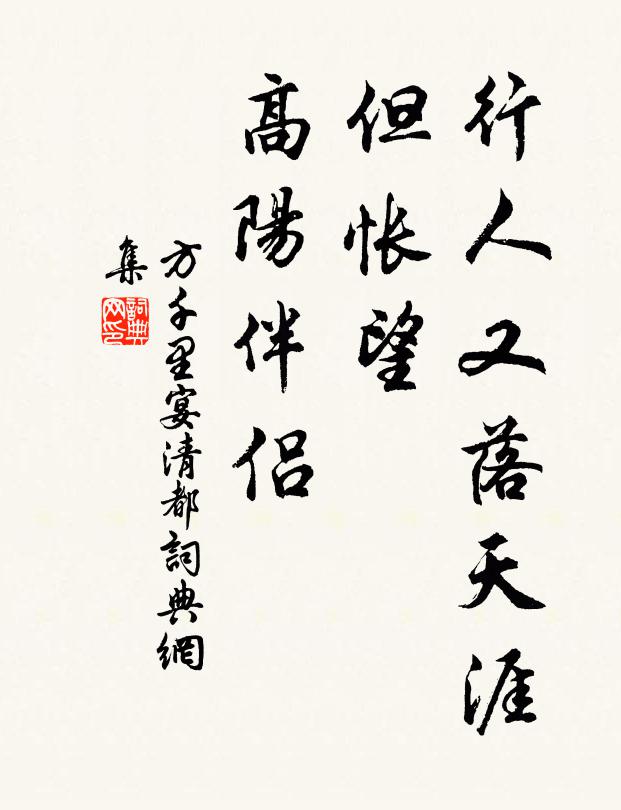 行人又落天涯
但悵望
高陽伴侶
方千里宴清都詞典網
集
詞典網印